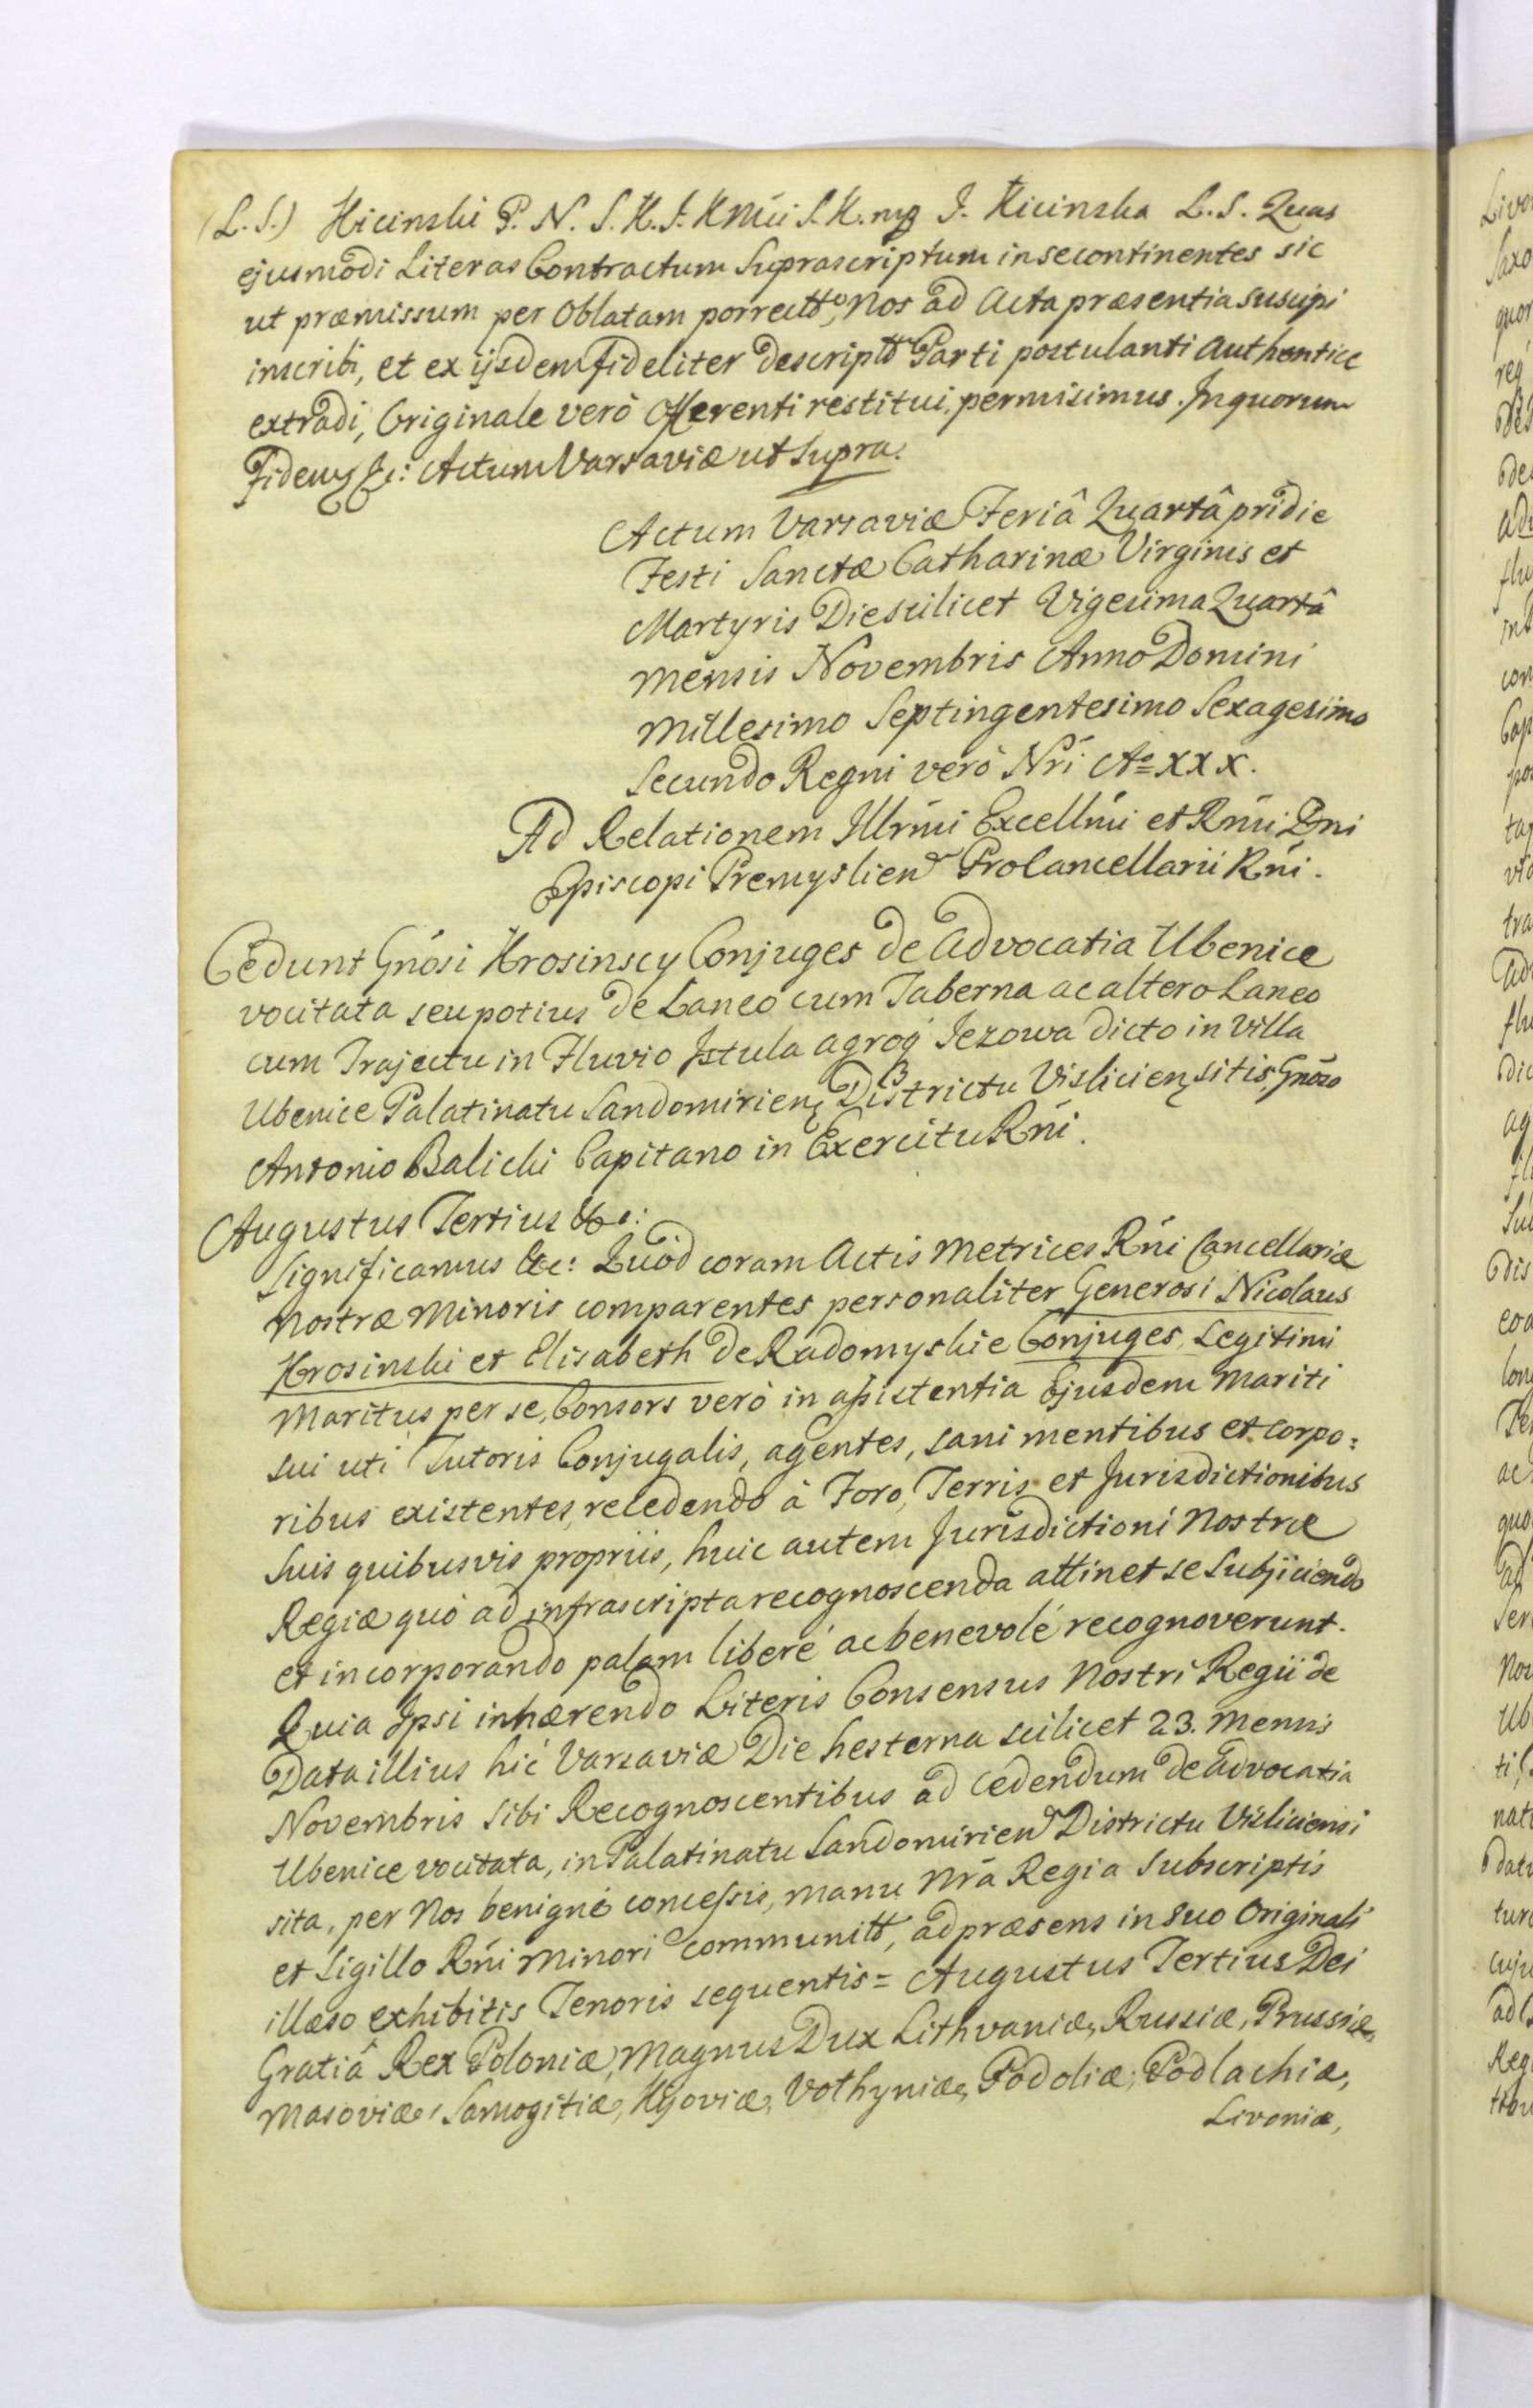 (L.S.) Kicinski P. N. S. K. J. K Mći S. K. mp J. Kicinska L.S. Quas
ejusmodi Literas Contractum Suprascriptum in se continentes sic
ut præmissum per Oblatam porrectt°, Nos ad Acta præsentia suscipi
inscribi, et ex ijsdem fideliter descriptt Parti postulanti Authentice
extradi, Originale verò Offerenti restitui, permisimus. In quorum
Fidem &c: Actum Varsaviæ ut Supra.
Actum Varsaviæ Feriâ Quartâ pridie
Festi Sanctæ Catharinæ Virginis et
Martyris Die scilicet Vigesima Quartâ
Mensis Novembris Anno Domini
Millesimo Septingentesimo Sexagesimo
Secundo Regni verò Nri A° XXX.
Ad Relationem Illrmi Excellmi et Rmi Dni
Episcopi Premyslien Procancellarii Rni.
Cedunt Gnosi Krosinscy Conjuges de Advocatia Ubenice
vocitata seu potius de Laneo cum Taberna ac altero Laneo
cum Trajectu in Fluvio Istula agroq Jezowa dicto in Villa
Ubenice Palatinatu Sandomirien Districtu Vislicien sitis, Gnoso
Antonio Balicki Capitano in Exercitu Rni.
Augustus Tertius &c:
Significamus &c: Quòd coram Actis Metrices Rni Cancellariæ
Nostræ Minoris comparentes personaliter Generosi Nicolaus
Krosinski et Elisabeth de Radomyskie Conjuges, Legitimi
Maritus per se, Consors verò in assistentia Ejusdem Mariti
sui uti Tutoris Conjugalis, agentes, sani mentibus et corpo:
ribus existentes, recedendo à Foro, Terris et Jurisdictionibus
Suis quibusvis propriis, huic autem Jurisdictioni Nostræ
Regiæ quò ad infrascripta recognoscenda attinet se Subjiciendo
et incorporando palam liberé ac benevolé recognoverunt.
Quia Ipsi inhærendo Literis Consensus Nostri Regii de
Data illius hic Varsaviæ Die hesterna scilicet 23. Mensis
Novembris sibi Recognoscentibus ad cedendum de Advocatia
Ubenice vocitata, in Palatinatu Sandomirien Districtu Visliciensi
sita, per Nos benignè concessis, manu Nrâ Regia Subscriptis
et Sigillo Rni Minori communitt, ad præsens in suo Originali
illæso exhibitis Tenoris sequentis = Augustus Tertius Dei
Gratiâ Rex Poloniæ, Magnus Dux Lithvaniæ, Russiæ, Prussiæ,
Masoviæ, Samogitiæ, Kijoviæ, Vothyniæ, Podoliæ, Podlachiæ,
Livoniæ,